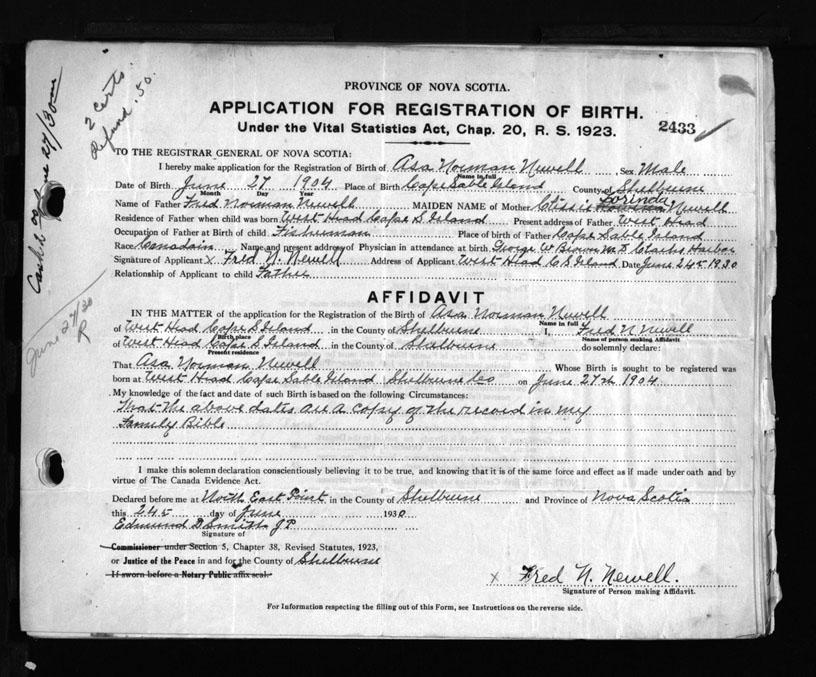 PROVINCE OF NOVA SCOTIA.
APPLICATION FOR REGISTRATION OF BIRTH.
Under the Vital Statistics Act, Chap. 20, R. S. 1923.
2433
2 Certs.
Refund .50.
June 27/30
TO THE REGISTRAR GENERAL OF NOVA SCOTIA:
I hereby make application for the Registration of Birth of Asa Norman Newell Sex Male
Name in full
Date of Birth June 27 1904 Place of Birth Cape Sable Island County of Shelburne
Month Day Year
Lorinda
Name of Father Fred Norman Newell MAIDEN NAME of Mother Newell
Residence of Father when child was born West Head Cape S Island Present address of Father West Head
Occupation of Father at Birth of child Fisherman Place of birth of Father Cape Sable Island
Race Canadain Name and present address of Physician in attendance at birth George W Brown M D Clarks Harbor
Signature of Applicant x Fred N. Newell Address of Applicant West Head C S Island Date June 24 1930
Relationship of Applicant to child Father
AFFIDAVIT
IN THE MATTER of the application for the Registration of the Birth of Asa Norman Newell
Name in full
of West Head Cape S Island in the County of Shelburne I, Fred N Newell
Birth place
Name of person making Affidavit
of West Head Cape S Island in the County of Shelburne do solemnly declare:
Present residence
That Asa Norman Newell Whose Birth is sought to be registered was
born at West Head Cape Sable Island Shelburne Co on June 27th 1904
My knowledge of the fact and date of such Birth is based on the following Circumstances:
That the above dates are a copy of the record in my
Family Bible
I make this solemn declaration conscientiously believing it to be true, and knowing that it is of the same force and effect as if made under oath and by
virtue of The Canada Evidence Act.
Declared before me at North East Point in the County of Shelburne and Province of Nova Scotia
this 24 day of June 1930
Edmund D Smith J P
Signature of
Commissioner under Section 5, Chapter 38, Revised Statutes, 1923,
or Justice of the Peace in and for the County of Shelburne
If sworn before a Notary Public affix seal.
x Fred N. Newell.
Signature of Person making Affidavit.
For Information respecting the filling out of this Form, see Instructions on the reverse side.